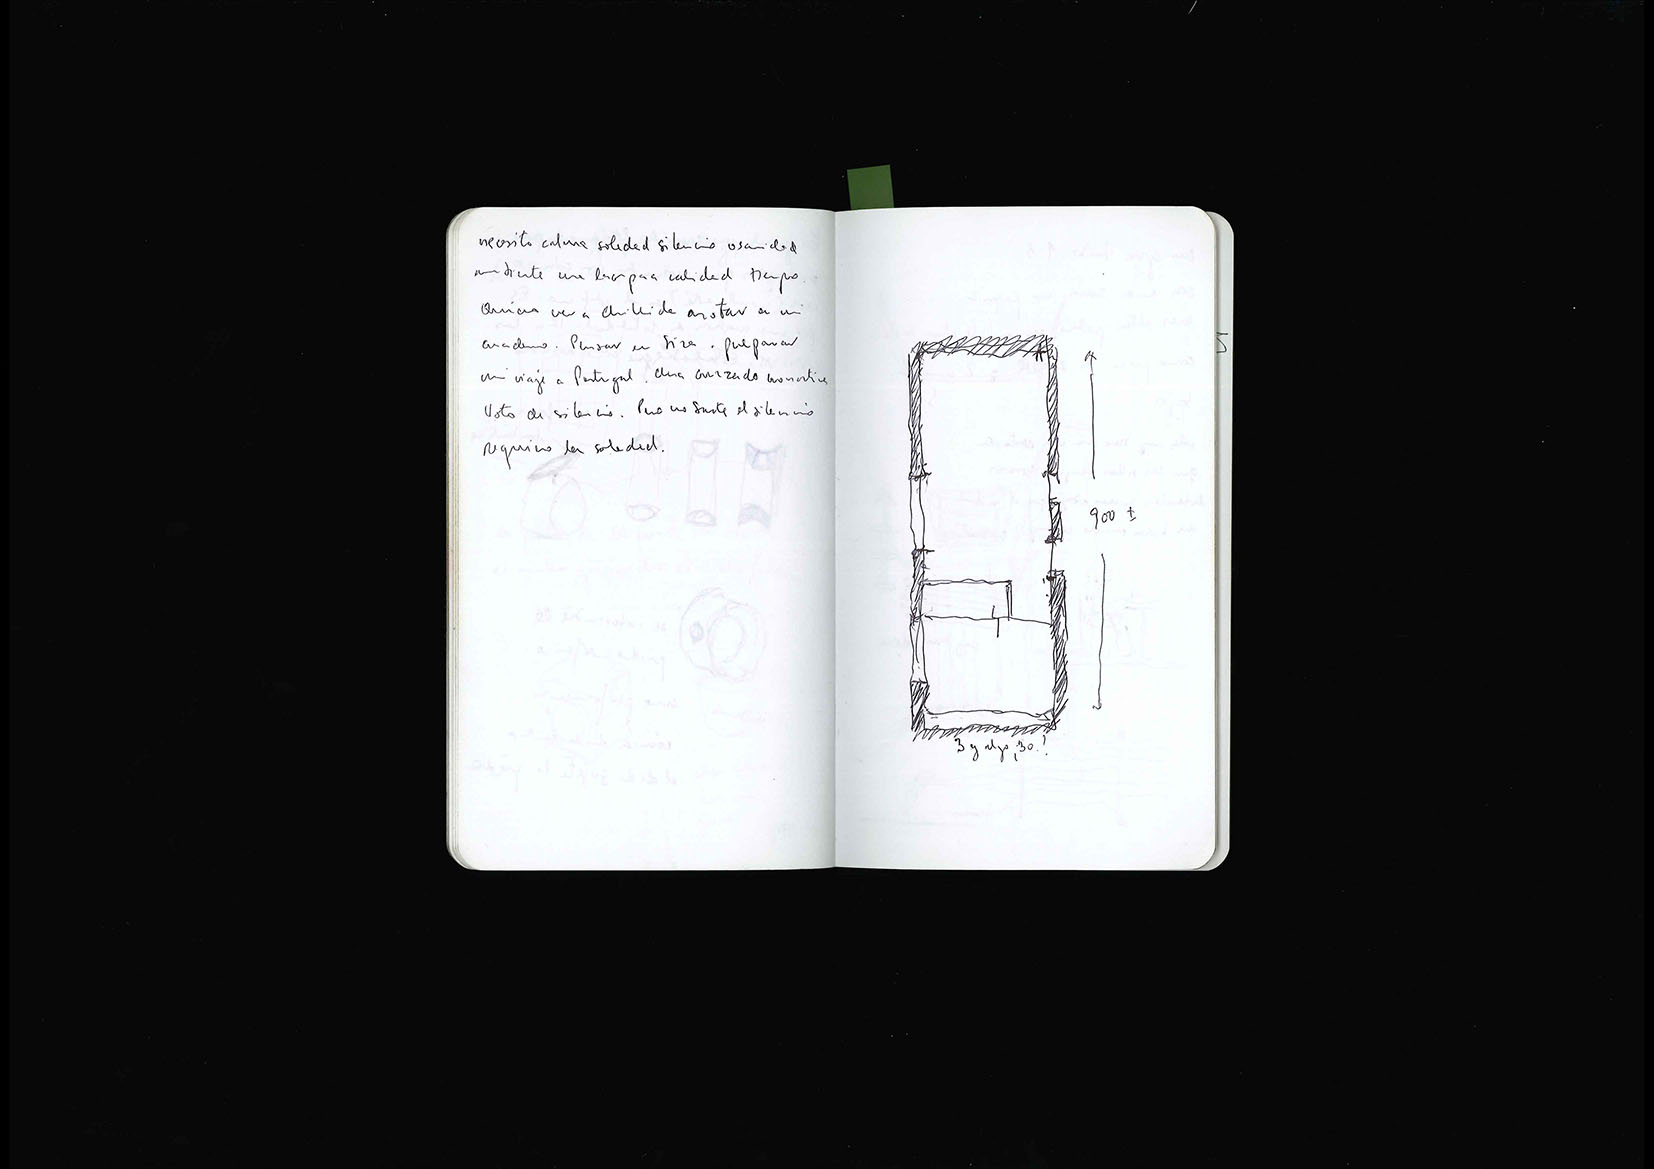 necesito calma soledad silencio oscuridad
mediante una lampara calidad tiempo.
Quiero ver a Chillida anotar en mi
cuaderno. Pensar en Siza. preparar
mi viaje a Portugal.
Voto de silencio. Pero no basta el silencio
requiero la soledad.
900 ±
3 y algo, 30!